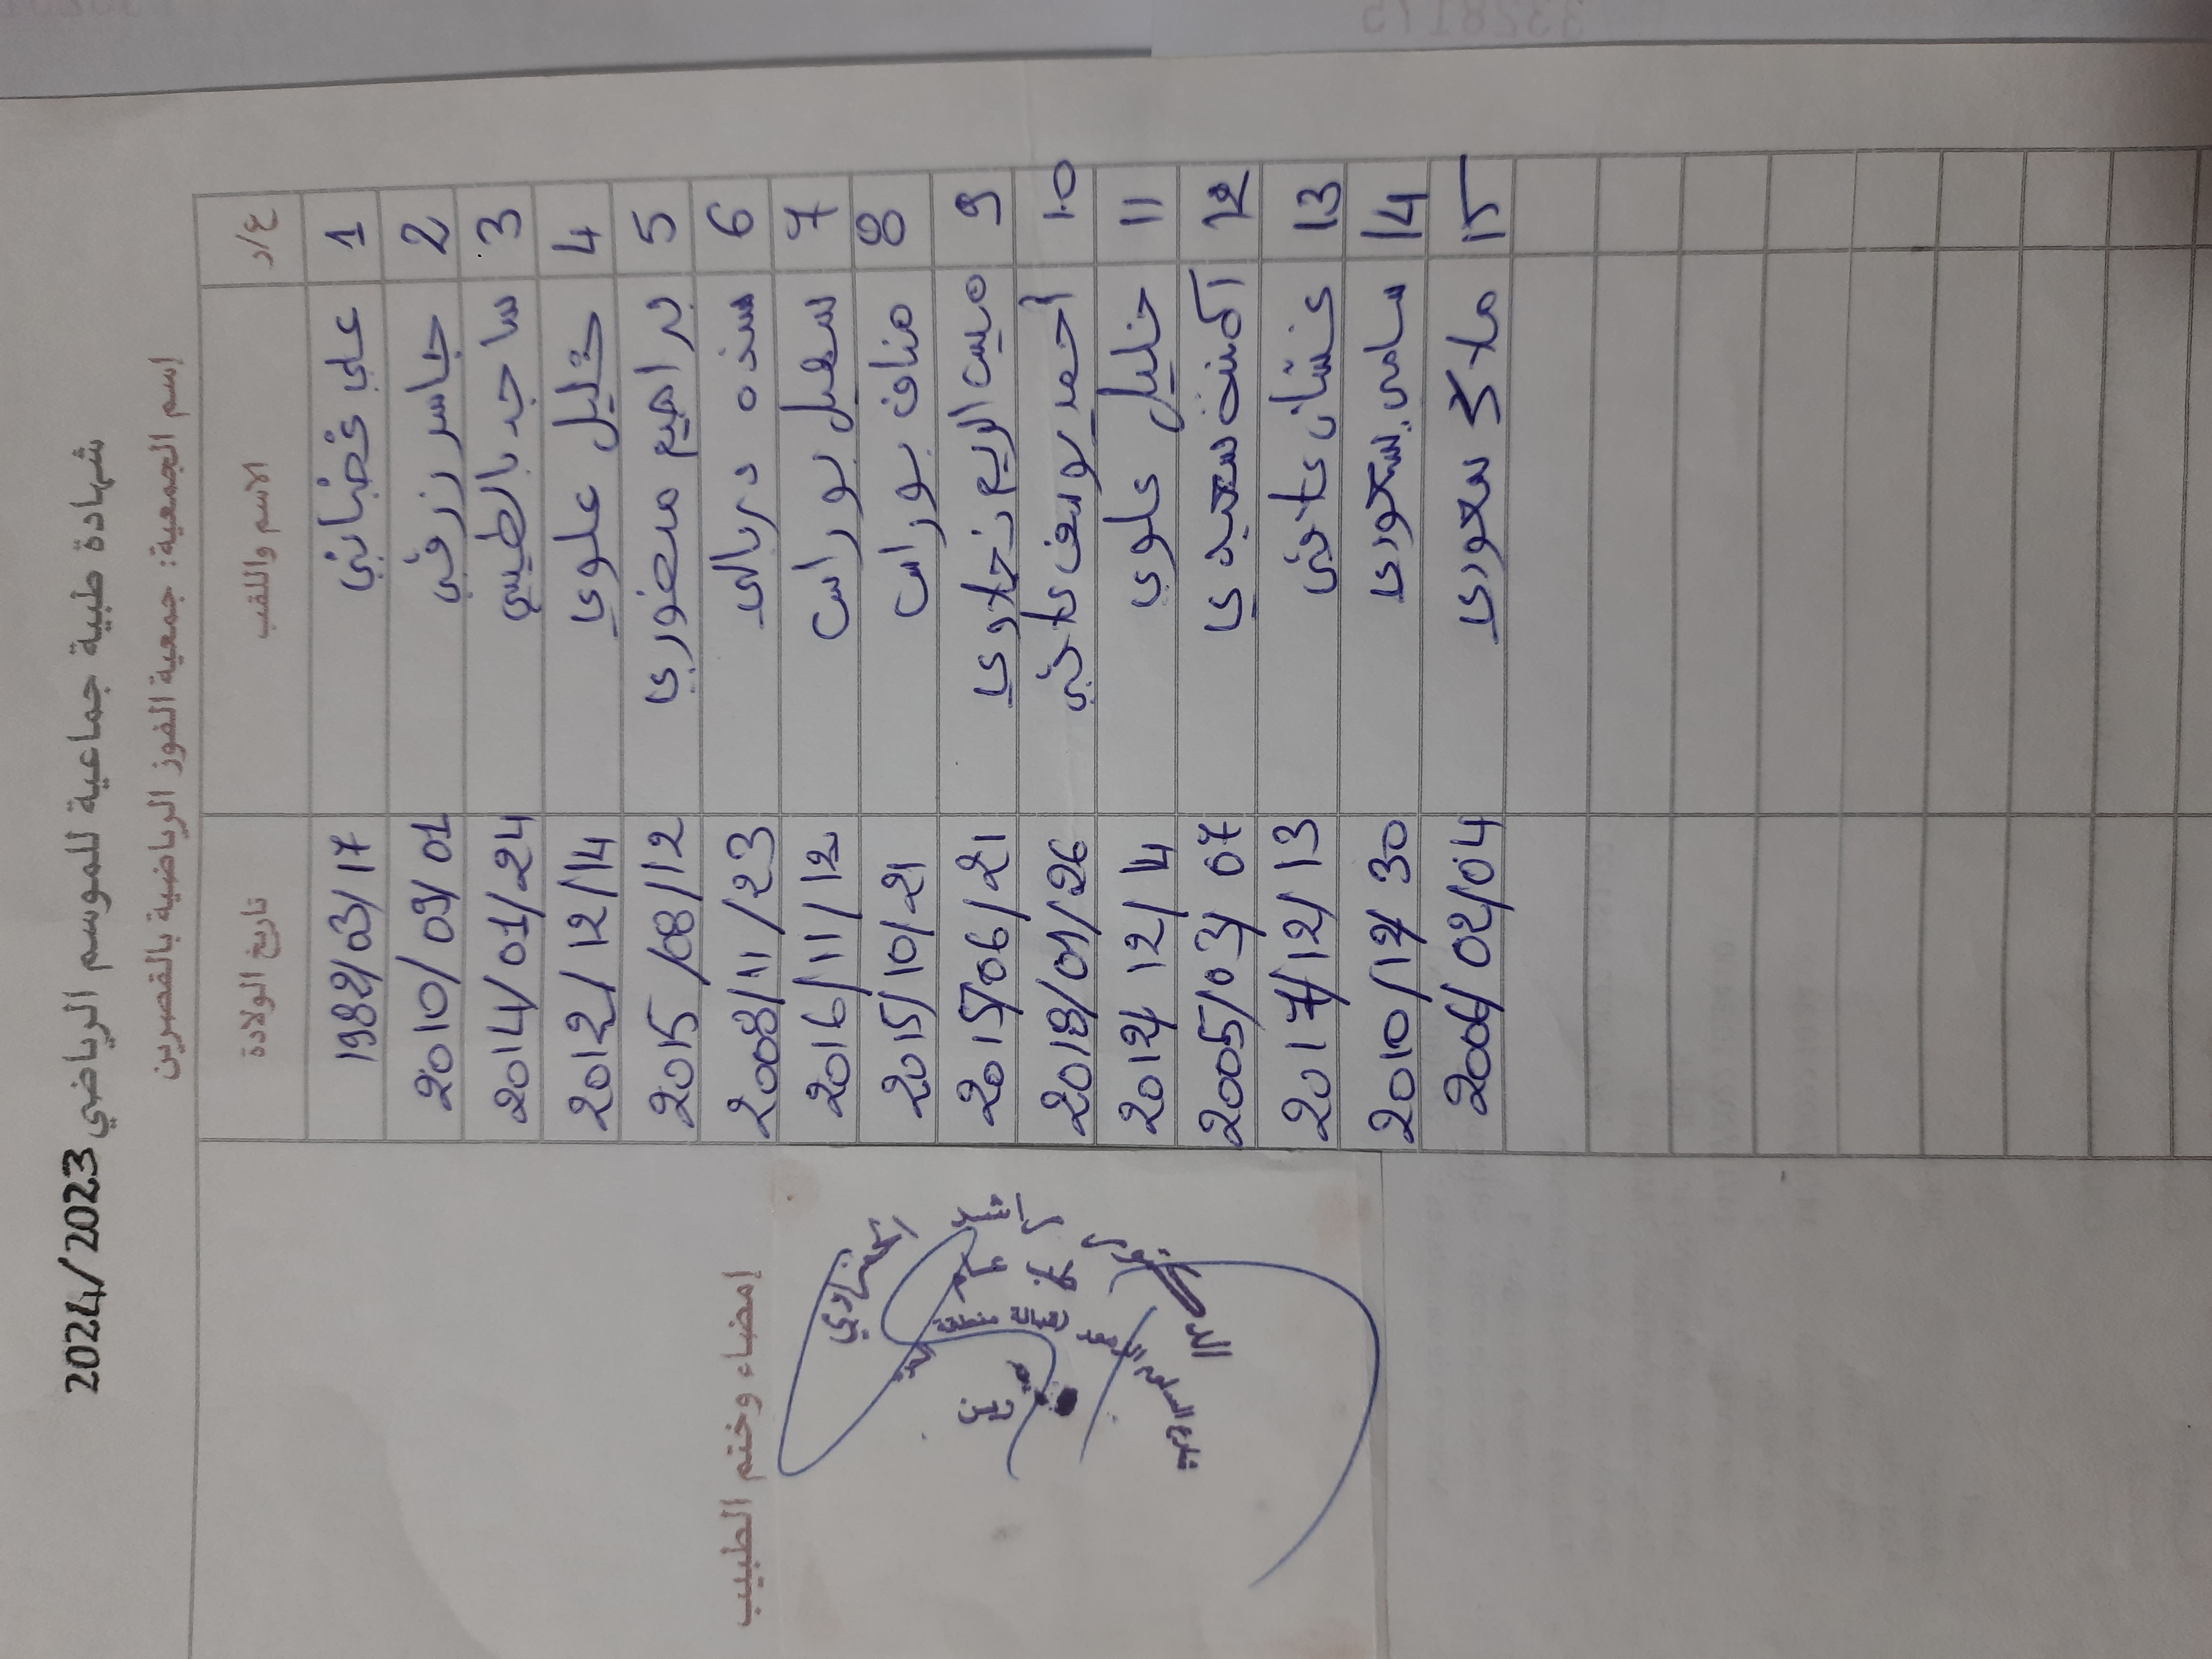 شهادة طبية جماعية للموسم الرياضي 2024/2023
إسم الجمعية: جمعية الفوز الرياضية بالقصرين
ع/ر الاسم واللقب تاريخ الولادة
1 علي غضباني 1982/03/17
2 جاسر رزقي 2010/09/01
3 ساجد بالطيبي 2014/01/24
4 خليل علوي 2012/12/14
5 براهيم منصوري 2015/08/12
6 سنده دربالي 2008/11/23
7 سهيل بوراس 2016/11/12
8 مناف بوراس 2015/10/21
9 ميس الريم نجلاوي 2015/06/21
10 أحمد يوسف 2018/01/26
11 خليل علوي 2012/12/4
12 آمنة سعيدي 2005/03/07
13 غسان 2017/12/13
14 سامي سعوري 2010/12/30
15 ملاك سعوري 2006/02/04
إمضاء وختم الطبيب